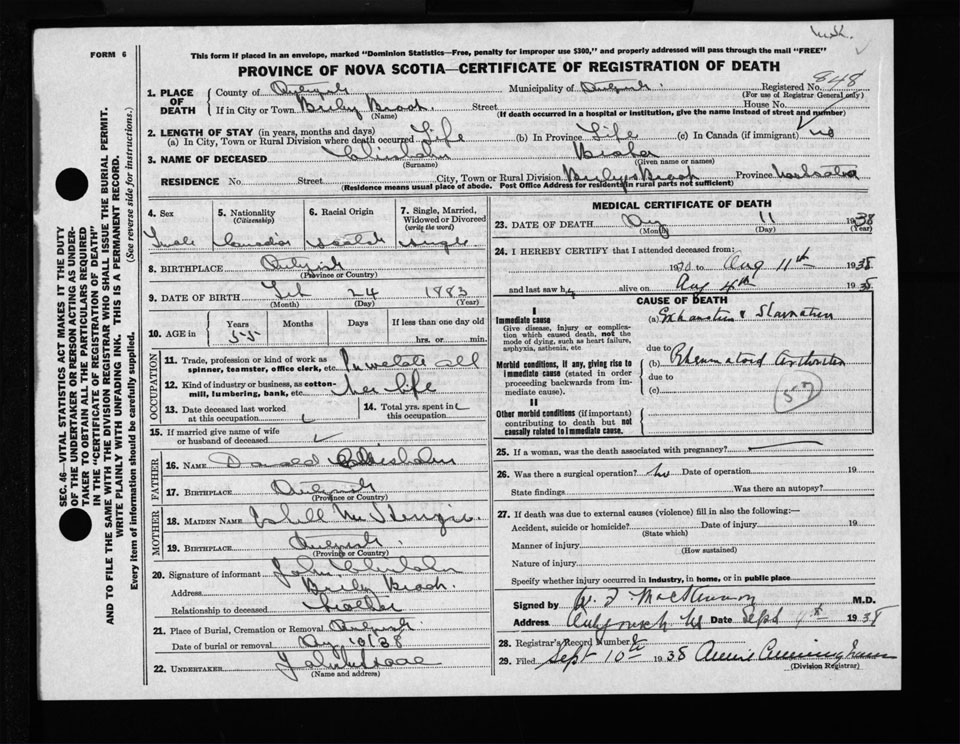 FORM 6
This form if placed in an envelope, marked "Dominion Statistics—Free, penalty for improper use $300," and properly addressed will pass through the mail "FREE"
PROVINCE OF NOVA SCOTIA—CERTIFICATE OF REGISTRATION OF DEATH
SEC. 46—VITAL STATISTICS ACT MAKES IT THE DUTY
OF THE UNDERTAKER OR PERSON ACTING AS UNDER-
TAKER TO OBTAIN ALL THE PARTICULARS REQUIRED
IN THE "CERTIFICATE OF REGISTRATION OF DEATH"
AND TO FILE THE SAME WITH THE DIVISION REGISTRAR WHO SHALL ISSUE THE BURIAL PERMIT.
WRITE PLAINLY WITH UNFADING INK. THIS IS A PERMANENT RECORD.
Every item of information should be carefully supplied. (See reverse side for instructions.)
1. PLACE OF DEATH
County of Antigonish Municipality of Antigonish Registered No. 848
(For use of Registrar General only)
If in City or Town Brook Street House No.
(Name) (If death occurred in a hospital or institution, give the name instead of street and number)
2. LENGTH OF STAY (in years, months and days)
(a) In City, Town or Rural Division where death occurred Life (b) In Province Life (c) In Canada (if immigrant) no
3. NAME OF DECEASED Chisholm
(Surname) (Given name or names)
RESIDENCE No. Street City, Town or Rural Division Brook Province Nova Scotia
(Residence means usual place of abode. Post Office Address for residents in rural parts not sufficient)
4. Sex 5. Nationality (Citizenship) 6. Racial Origin 7. Single, Married, Widowed or Divorced (write the word)
Canadian Scotch Single
8. BIRTHPLACE Antigonish
(Province or Country)
9. DATE OF BIRTH Feb 24 1883
(Month) (Day) (Year)
10. AGE in Years Months Days If less than one day old
55 hrs. or min.
OCCUPATION
11. Trade, profession or kind of work as spinner, teamster, office clerk, etc. Invalid all
12. Kind of industry or business, as cotton-mill, lumbering, bank, etc. her life
13. Date deceased last worked at this occupation
14. Total yrs. spent in this occupation
15. If married give name of wife or husband of deceased
FATHER
16. NAME Donald Chisholm
17. BIRTHPLACE Antigonish
(Province or Country)
MOTHER
18. MAIDEN NAME
19. BIRTHPLACE Antigonish
(Province or Country)
20. Signature of informant John Chisholm
Address Brook
Relationship to deceased Brother
21. Place of Burial, Cremation or Removal Antigonish
Date of burial or removal
22. UNDERTAKER
(Name and address)
MEDICAL CERTIFICATE OF DEATH
23. DATE OF DEATH Aug 11 1938
(Month) (Day) (Year)
24. I HEREBY CERTIFY that I attended deceased from:
to Aug 11th 1938
and last saw h alive on Aug 4th 1938
CAUSE OF DEATH
I
Immediate cause
Give disease, injury or complication which caused death, not the mode of dying, such as heart failure, asphyxia, asthenia, etc
(a) Exhaustion & Starvation
due to
Morbid conditions, if any, giving rise to immediate cause (stated in order proceeding backwards from immediate cause).
(b) Rheumatoid Arthritis
due to
(c)
II
Other morbid conditions (if important) contributing to death but not causally related to immediate cause.
25. If a woman, was the death associated with pregnancy?
26. Was there a surgical operation? no Date of operation 19
State findings Was there an autopsy?
27. If death was due to external causes (violence) fill in also the following:—
Accident, suicide or homicide? Date of injury 19
(State which)
Manner of injury
(How sustained)
Nature of injury
Specify whether injury occurred in industry, in home, or in public place
Signed by M.D.
Address Antigonish NS Date Sept 1938
28. Registrar's Record Number
29. Filed Sept 10th 1938 Annie Cunningham
(Division Registrar)